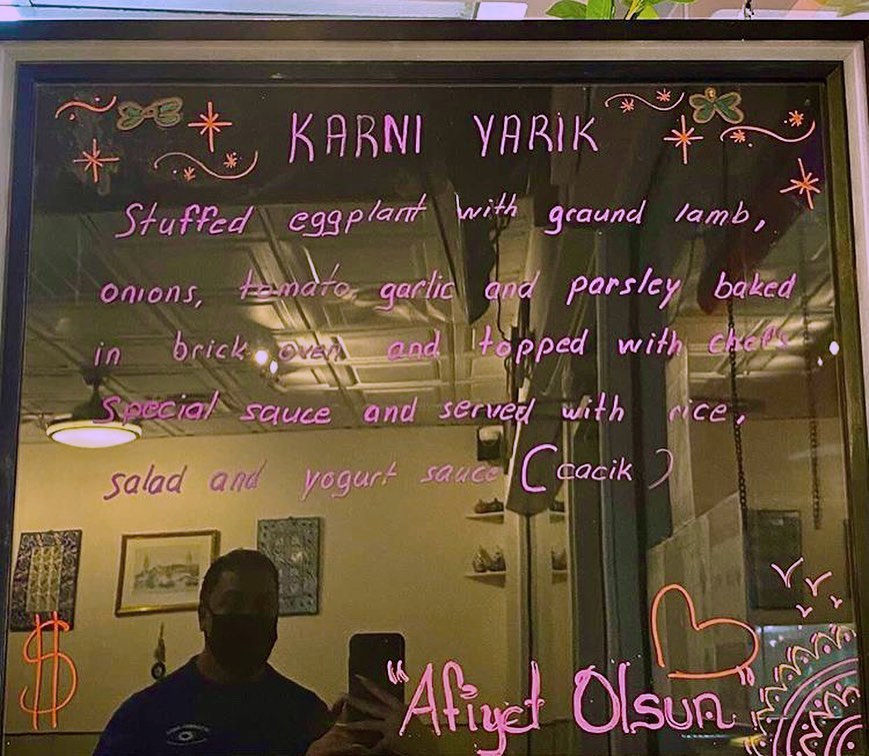 KARNI YARIK
Stuffed eggplant with ground lamb,
onions, tomato, garlic and parsley baked
in brick oven and topped with chef's
Special sauce and served with rice,
salad and yogurt sauce (cacik)
$
"Afiyet Olsun